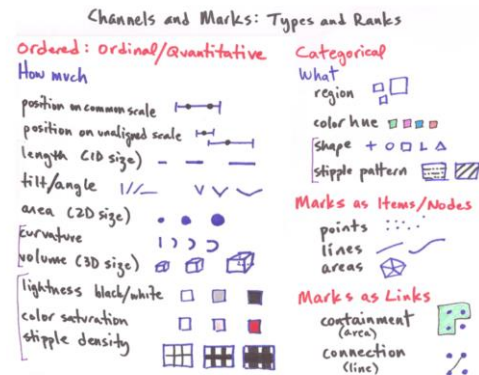 Channels and Marks: Types and Ranks
Ordered: Ordinal/Quantitative
How much
position on common scale
position on unaligned scale
length (1D size)
tilt/angle
area (2D size)
curvature
volume (3D size)
lightness black/white
color saturation
stipple density
Categorical
What
region
color hue
shape
stipple pattern
Marks as Items/Nodes
points
lines
areas
Marks as Links
containment
(area)
connection
(line)